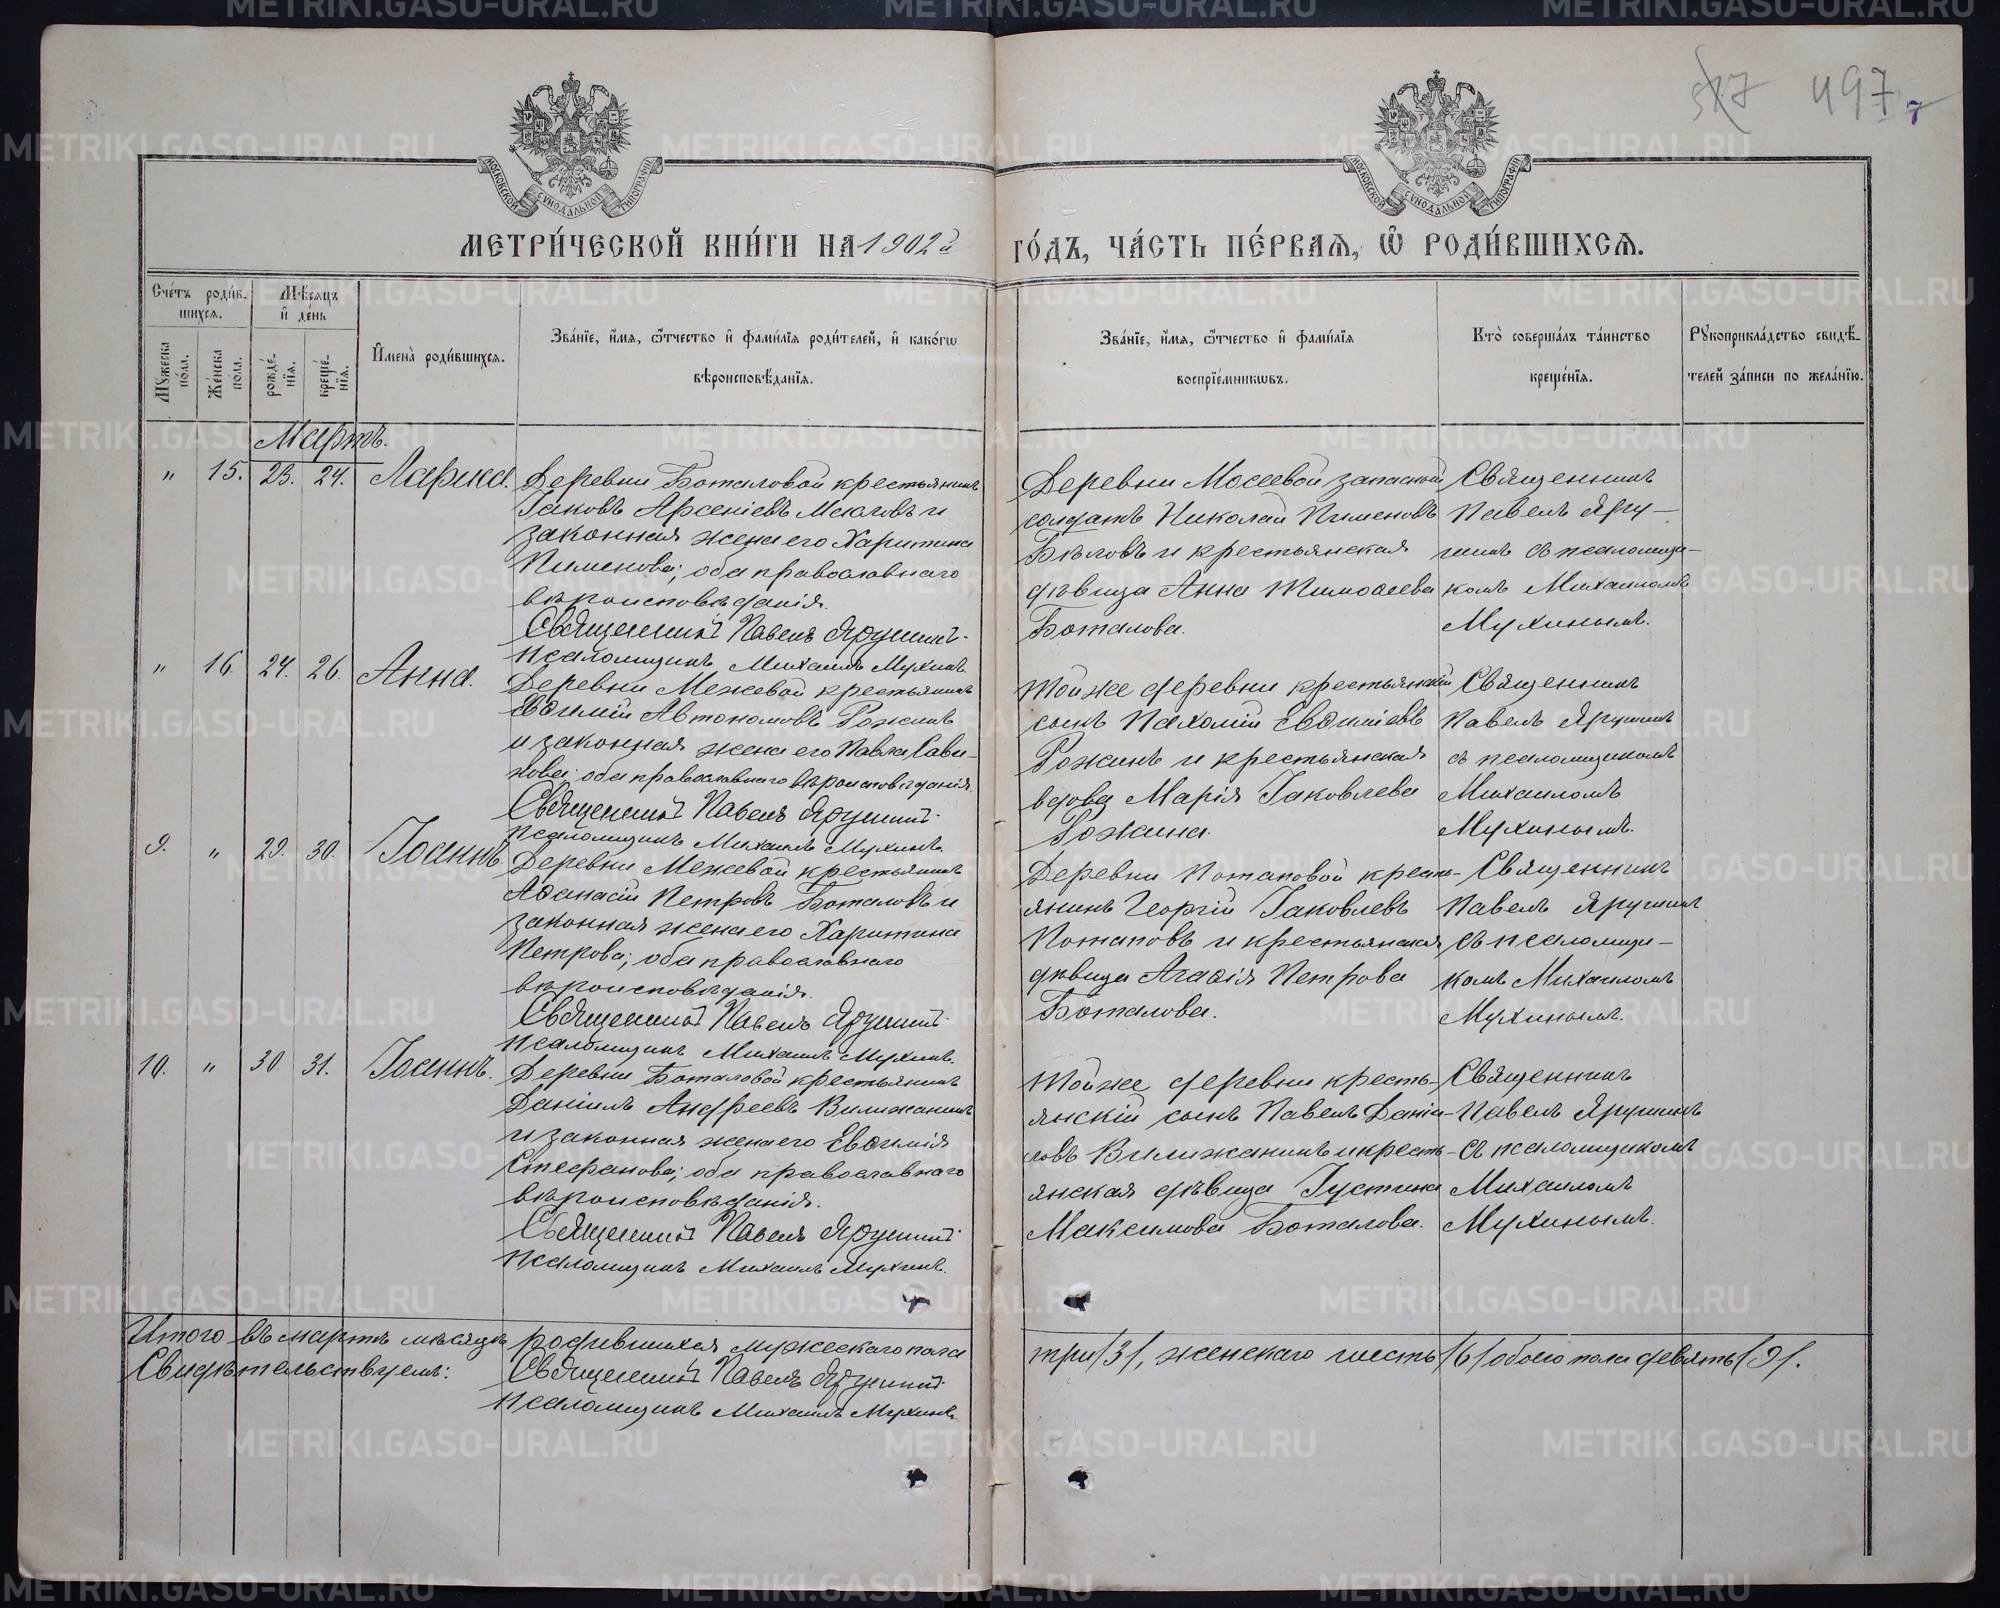 517 497 7
МОСКОВСКОЙ СѴНОДАЛЬНОЙ ТИПОГРАФІИ
МОСКОВСКОЙ СѴНОДАЛЬНОЙ ТИПОГРАФІИ
МЕТРИ́ЧЕСКОЙ КНИ́ГИ НА 1902й
ГО́ДЪ, ЧА́СТЬ ПЕ́РВАѦ, Ѽ РОДИ́ВШИХСѦ.
Сче́тъ роди́в-
шихсѧ.
Мѣ́сѧцъ
и҆ де́нь
Мꙋ́жеска по́ла.
Же́нска по́ла.
рожде́-
нїѧ.
креще́-
нїѧ.
И҆мена̀ роди́вшихсѧ.
Зва́нїе, и҆́мѧ, ѻ҆́тчество и҆ фами́лїѧ роди́телей, и҆ како́гѡ
вѣроисповѣ́данїѧ.
Зва́нїе, и҆́мѧ, ѻ҆́тчество и҆ фами́лїѧ
воспрїе́мникѡвъ.
Кто̀ соверша́лъ та́инство
креще́нїѧ.
Рꙋкоприкла́дство свидѣ́-
телей за́писи по жела́нїю.
Мартъ.
„ 15. 23. 24. Лариса.
Деревни Боталовой крестьянинъ
Іаковъ Арсеніевъ Мокловъ и
законная жена его Харитина
Пименова; оба православнаго
вѣроисповѣданія.
Священникъ Павелъ Ярушинъ.
Псаломщикъ Михаилъ Мухинъ.
Деревни Мосеевой запасной
солдатъ Николай Пименовъ
Бѣловъ и крестьянская
дѣвица Анна Тимоѳеева
Боталова.
Священникъ
Павелъ Яру-
шинъ съ псаломщи-
комъ Михаиломъ
Мухинымъ.
„ 16. 24. 26. Анна.
Деревни Межевой крестьянинъ
Евѳимій Автономовъ Рожинъ
и законная жена его Павла Сави-
нова; оба православнаго вѣроисповѣданія.
Священникъ Павелъ Ярушинъ.
Псаломщикъ Михаилъ Мухинъ.
Той же деревни крестьянскій
сынъ Пахомій Евѳиміевъ
Рожинъ и крестьянская
вдова Марія Іаковлева
Рожина.
Священникъ
Павелъ Ярушинъ
съ псаломщикомъ
Михаиломъ
Мухинымъ.
9. „ 29. 30. Іоаннъ.
Деревни Межевой крестьянинъ
Аѳанасій Петровъ Боталовъ и
законная жена его Харитина
Петрова; оба православнаго
вѣроисповѣданія.
Священникъ Павелъ Ярушинъ.
Псаломщикъ Михаилъ Мухинъ.
Деревни Потаповой кресть-
янинъ Георгій Іаковлевъ
Потаповъ и крестьянская
дѣвица Агаѳія Петрова
Боталова.
Священникъ
Павелъ Ярушинъ
съ псаломщи-
комъ Михаиломъ
Мухинымъ.
10. „ 30. 31. Іоаннъ.
Деревни Боталовой крестьянинъ
Даніилъ Андреевъ Вилижанинъ
и законная жена его Евѳимія
Стефанова; оба православнаго
вѣроисповѣданія.
Священникъ Павелъ Ярушинъ.
Псаломщикъ Михаилъ Мухинъ.
Той же деревни кресть-
янскій сынъ Павелъ Даніи-
ловъ Вилижанинъ и кресть-
янская дѣвица Іустина
Максимова Боталова.
Священникъ
Павелъ Ярушинъ
съ псаломщикомъ
Михаиломъ
Мухинымъ.
Итого въ мартѣ мѣсяцѣ родившихся мужескаго пола три /3/, женскаго шесть /6/ обоего пола девять /9/.
Свидѣтельствуемъ: Священникъ Павелъ Ярушинъ.
Псаломщикъ Михаилъ Мухинъ.
METRIKI.GASO-URAL.RU